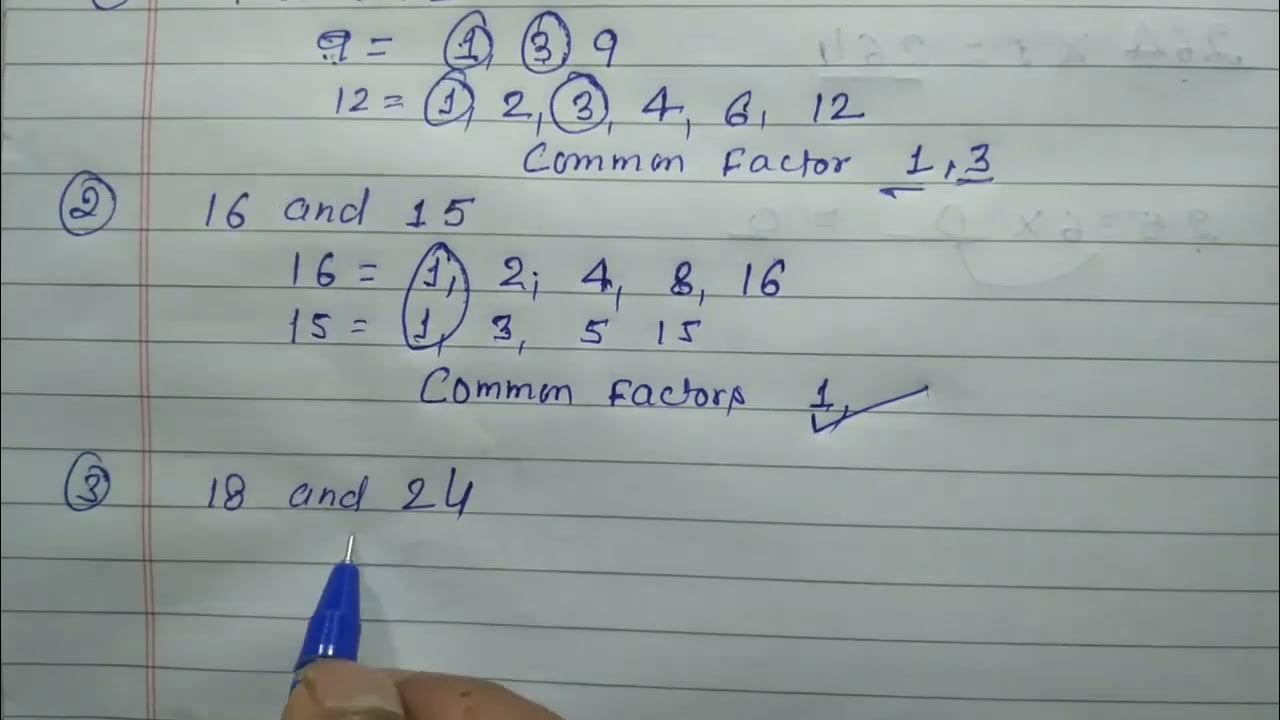 9 = 1, 3 9
12 = 1, 2, 3, 4, 6, 12
Common Factor 1, 3
② 16 and 15
16 = 1, 2, 4, 8, 16
15 = 1, 3, 5 15
Common Factors 1,
③ 18 and 24